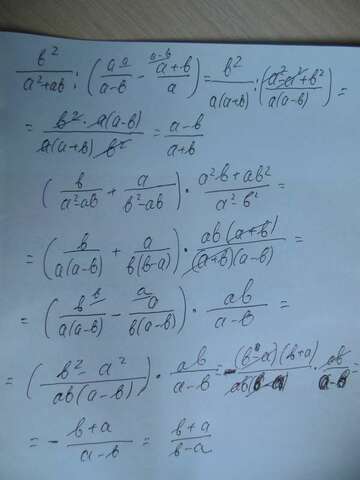 b²/(a²+ab) : (a a/(a-b) - a-b a+b/a) = b²/(a(a+b)) : (a²-a²+b²)/(a(a-b)) =
= b²·a(a-b)/(a(a+b) b²) = (a-b)/(a+b)
(b/(a²-ab) + a/(b²-ab)) · (a²b+ab²)/(a²-b²) =
= (b/(a(a-b)) + a/(b(b-a))) · ab(a+b)/((a+b)(a-b)) =
= (b b/(a(a-b)) - a a/(b(a-b))) · ab/(a-b) =
= (b²-a²/(ab(a-b))) · ab/(a-b) = -(b-a)(b+a)/(ab(b-a)) · ab/(a-b) =
= -(b+a)/(a-b) = (b+a)/(b-a)